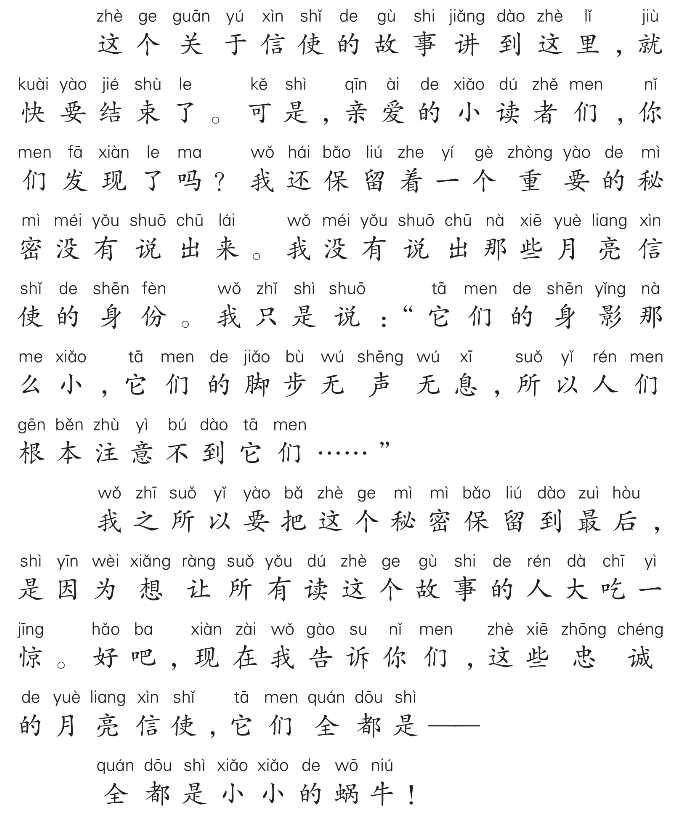 zhè ge guān yú xìn shǐ de gù shi jiǎng dào zhè lǐ jiù
这个关于信使的故事讲到这里，就
kuài yào jié shù le kě shì qīn ài de xiǎo dú zhě men nǐ
快要结束了。可是，亲爱的小读者们，你
men fā xiàn le ma wǒ hái bǎo liú zhe yí gè zhòng yào de mì
们发现了吗？我还保留着一个重要的秘
mì méi yǒu shuō chū lái wǒ méi yǒu shuō chū nà xiē yuè liang xìn
密没有说出来。我没有说出那些月亮信
shǐ de shēn fèn wǒ zhǐ shì shuō tā men de shēn yǐng nà
使的身份。我只是说：“它们的身影那
me xiǎo tā men de jiǎo bù wú shēng wú xī suǒ yǐ rén men
么小，它们的脚步无声无息，所以人们
gēn běn zhù yì bú dào tā men
根本注意不到它们……”
wǒ zhī suǒ yǐ yào bǎ zhè ge mì mì bǎo liú dào zuì hòu
我之所以要把这个秘密保留到最后，
shì yīn wèi xiǎng ràng suǒ yǒu dú zhè ge gù shi de rén dà chī yì
是因为想让所有读这个故事的人大吃一
jīng hǎo ba xiàn zài wǒ gào su nǐ men zhè xiē zhōng chéng
惊。好吧，现在我告诉你们，这些忠诚
de yuè liang xìn shǐ tā men quán dōu shì
的月亮信使，它们全都是——
quán dōu shì xiǎo xiǎo de wō niú
全都是小小的蜗牛！